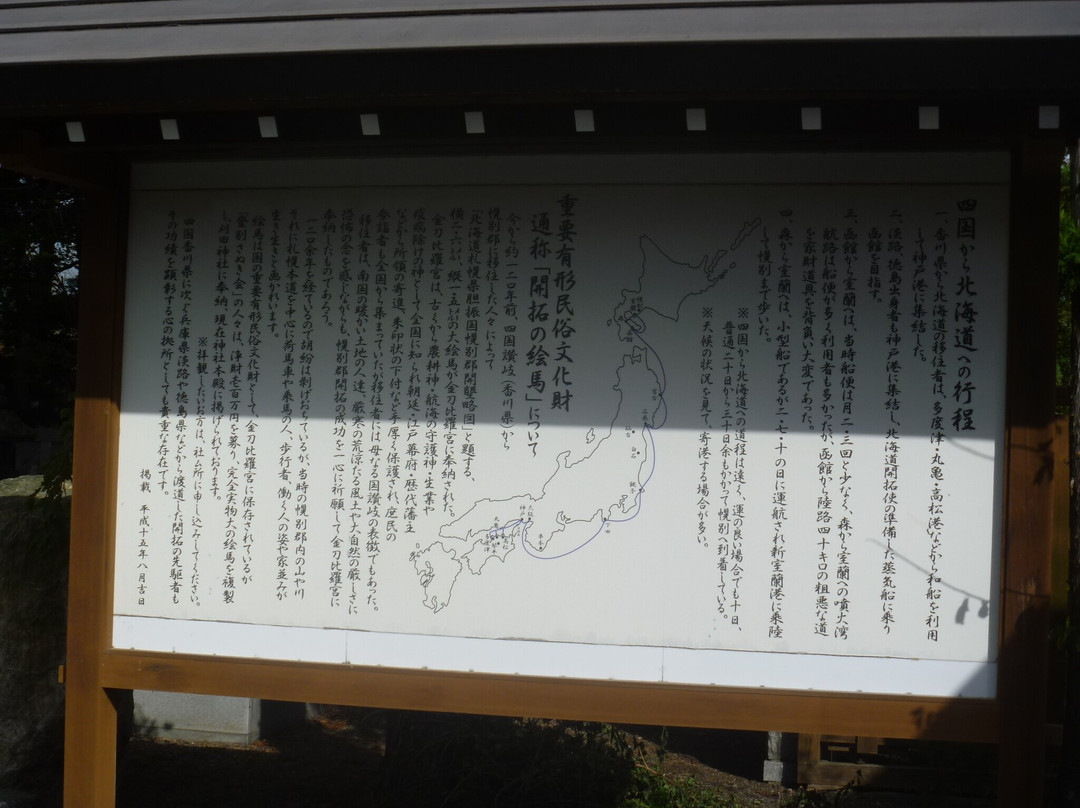 四国から北海道への行程
一、香川県から北海道の移住者は、多度津・丸亀・高松港などから和船を利用
して神戸港に集結した。
二、淡路、徳島出身者も神戸港に集結し、北海道開拓使の準備した蒸気船に乗り
函館を目指す。
三、函館から室蘭へは、当時船便は月二・三回と少なく、森から室蘭への噴火湾
航路は船便が多く利用者も多かったが、函館から陸路四十キロの粗悪な道
を家財道具を背負い大変であった。
四、森から室蘭へは、小型船であるが二・七・十の日に運航され新室蘭港に乗陸
して幌別まで歩いた。
※四国から北海道への道程は遠く、運の良い場合でも十日、
普通二十日から三十日余もかかって幌別へ到着している。
※天候の状況を見て、寄港する場合が多い。
幌別
室蘭
函館
宮古
石巻
仙台
福島
銚子
下田
大阪
神戸
串本
丸亀
高松
多度津
重要有形民俗文化財
通称「開拓の絵馬」について
今から約一二〇年前、四国讃岐(香川県)から
幌別郡に移住した人々によって
「北海道札幌県胆振国幌別郡開墾略図」と題する、
横二・六㍍、縦一・五㍍の大絵馬が金刀比羅宮に奉納された。
金刀比羅宮は、古くから農耕神・航海の守護神・生業や
疫病除けの神として全国に知られ朝廷・江戸幕府・歴代藩主
などから所領の寄進、朱印状の下付など手厚く保護され、庶民の
参詣者も全国から集まっていたが移住者には母なる国讃岐の表徴でもあった。
移住者は、南国の暖かい土地の人達、厳寒の荒涼たる風土や大自然の厳しさに
恐怖の念を感じながらも、幌別郡開拓の成功を一心に祈願して金刀比羅宮に
奉納したものであろう。
一二〇余年を経ているので胡紛は剥げおちているが、当時の幌別郡内の山や川
それに札幌本道を中心に荷馬車や乗馬の人、歩行者、働く人の姿や家並みが
生き生きと画かれいます。
絵馬は国の重要有形民俗文化財として、金刀比羅宮に保存されているが
「登別さぬき会」の人々は、浄財壱百万円を募り、完全実物大の絵馬を複製
し刈田神社に奉納、現在神社本殿に掲げられております。
※拝観したいお方は、社ム所に申し込みしてください。
四国香川県に次ぐ兵庫県淡路や徳島県などから渡道した開拓の先駆者も
その功績を顕彰する心の拠所としても貴重な存在です。
掲載 平成十五年八月吉日